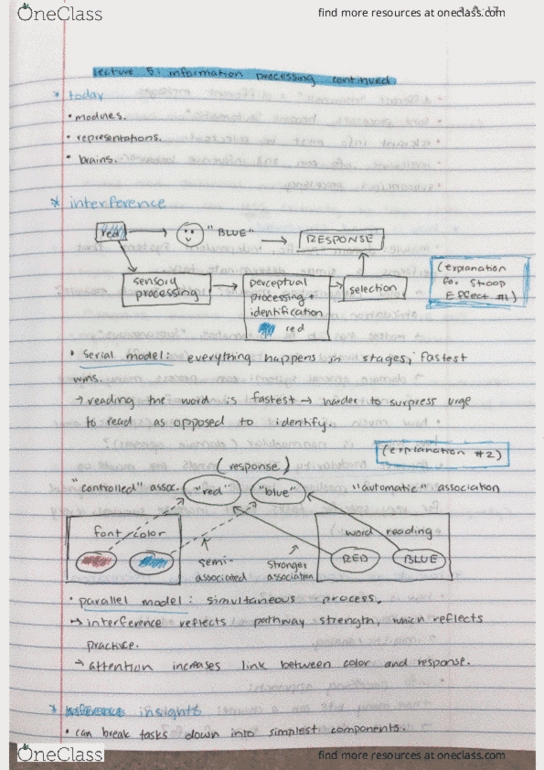 OneClass
find more resources at oneclass.com
lecture 5: information processing continued
* today
• modules.
• representations.
• brains.
* interference
red → "BLUE" → RESPONSE
sensory processing → perceptual processing + identification → selection
red
(explanation for Stroop Effect #1)
• serial model: everything happens in stages; fastest
wins.
→ reading the word is fastest → harder to surpress urge
to read as opposed to identify.
(explanation #2)
(response)
"controlled" assoc. "red" "blue" "automatic" association
font color
word reading
semi-associated
stronger association
RED BLUE
• parallel model: simultaneous process.
→ interference reflects pathway strength, which reflects
practice.
→ attention increases link between color and response.
* insights
• can break tasks down into simplest components.
OneClass
find more resources at oneclass.com